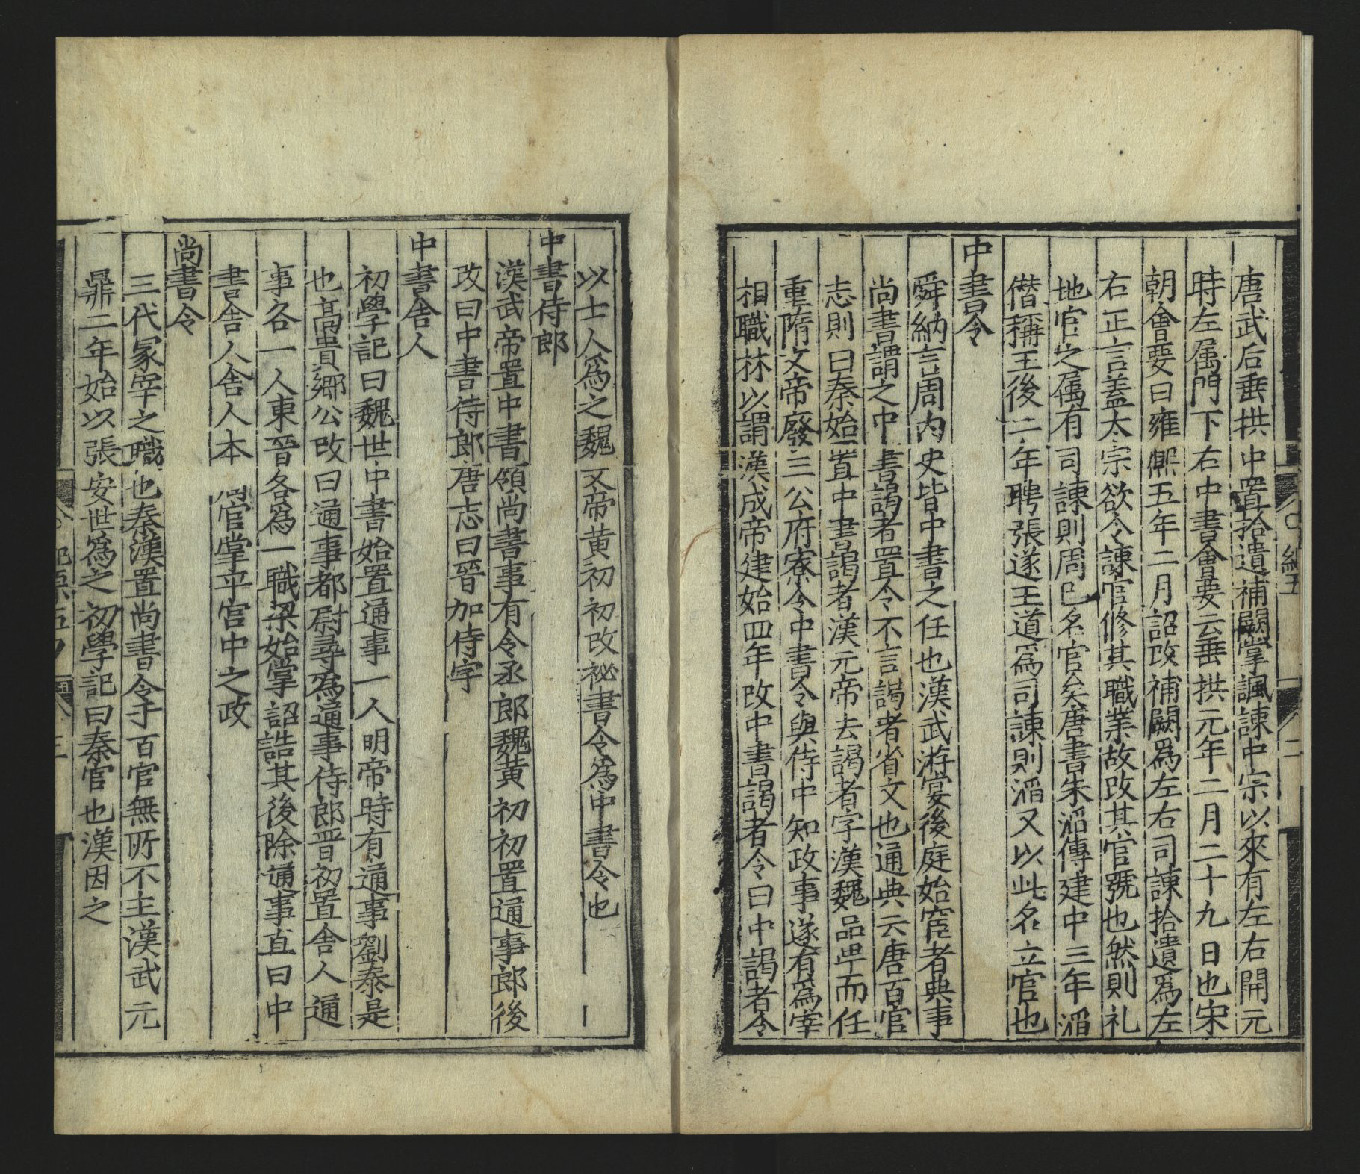 唐武后垂拱中置拾遺補闕掌諷諫中宗以來有左右開元
時左属門下右中書會要云垂拱元年二月二十九日也宋
朝會要曰雍熙五年二月詔改補闕為左右司諫拾遺為左
右正言蓋太宗欲令諫官修其職業故改其官號也然則礼
地官之属有司諫則周已名官矣唐書朱滔傳建中三年滔
僣稱王後二年聘張遂王道為司諫則滔又以此名立官也
中書令
舜納言周内史皆中書之任也漢武游宴後庭始宦者典事
尚書謂之中書謁者置令不言謁者省文也通典云唐百官
志則曰秦始置中書謁者漢元帝去謁者字漢魏品卑而任
重隋文帝廢三公府寮令中書令與侍中知政事遂有為宰
相職林以謂漢成帝建始四年改中書謁者令曰中謁者令
以士人為之魏文帝黄初初改秘書令為中書令也
中書侍郎
漢武帝置中書領尚書事有令丞郎魏黄初初置通事郎後
改曰中書侍郎唐志曰晉加侍字
中書舍人
初學記曰魏世中書始置通事一人明帝時有通事劉泰是
也髙貴郷公改曰通事都尉尋為通事侍郎晋初置舍人通
事各一人東晉各為一職梁始掌詔誥其後除通事直曰中
書舍人舍人本官掌平宫中之政
尚書令
三代冢宰之職也秦漢置尚書令于百官無所不主漢武元
鼎二年始以張安世為之初學記曰秦官也漢因之